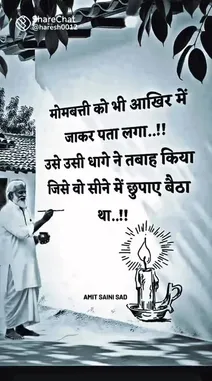 ShareChat
@haresh0012
मोमबत्ती को भी आखिर में
जाकर पता लगा..!!
उसे उसी धागे ने तबाह किया
जिसे वो सीने में छुपाए बैठा
था..!!
AMIT SAINI SAD